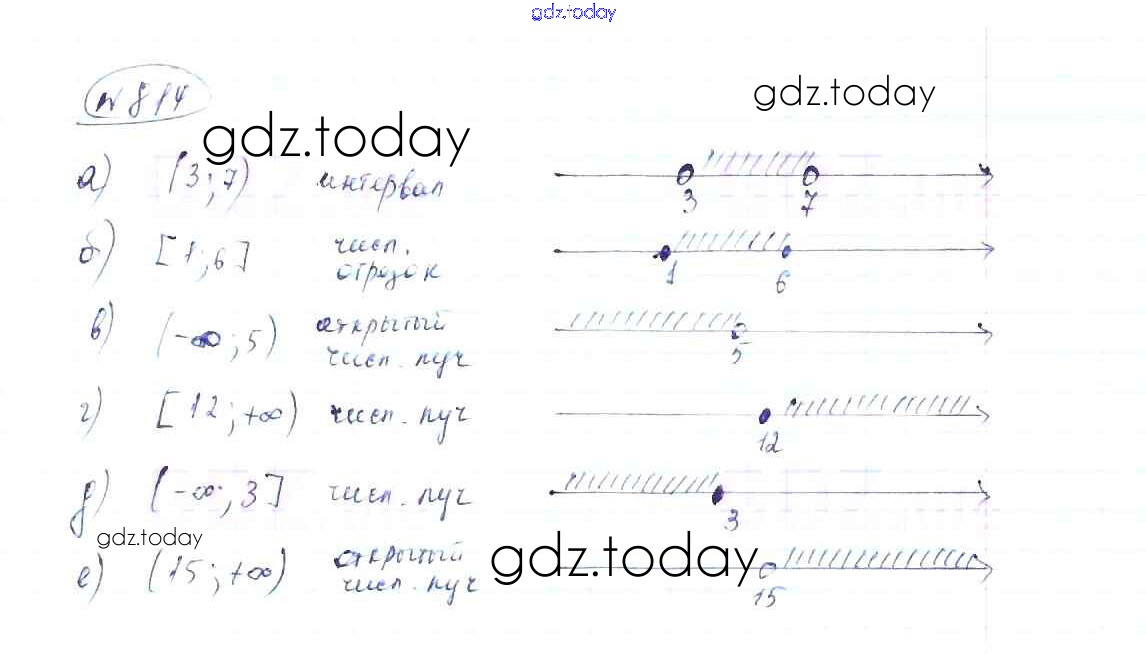 gdz.today
№ 814
gdz.today
gdz.today
а) (3; 7) интервал 3 7
б) [1; 6] числ. отрезок 1 6
в) (-∞; 5) открытый числ. луч 5
г) [12; +∞) числ. луч 12
д) (-∞; 3] числ. луч 3
gdz.today
gdz.today
е) (15; +∞) открытый числ. луч 15